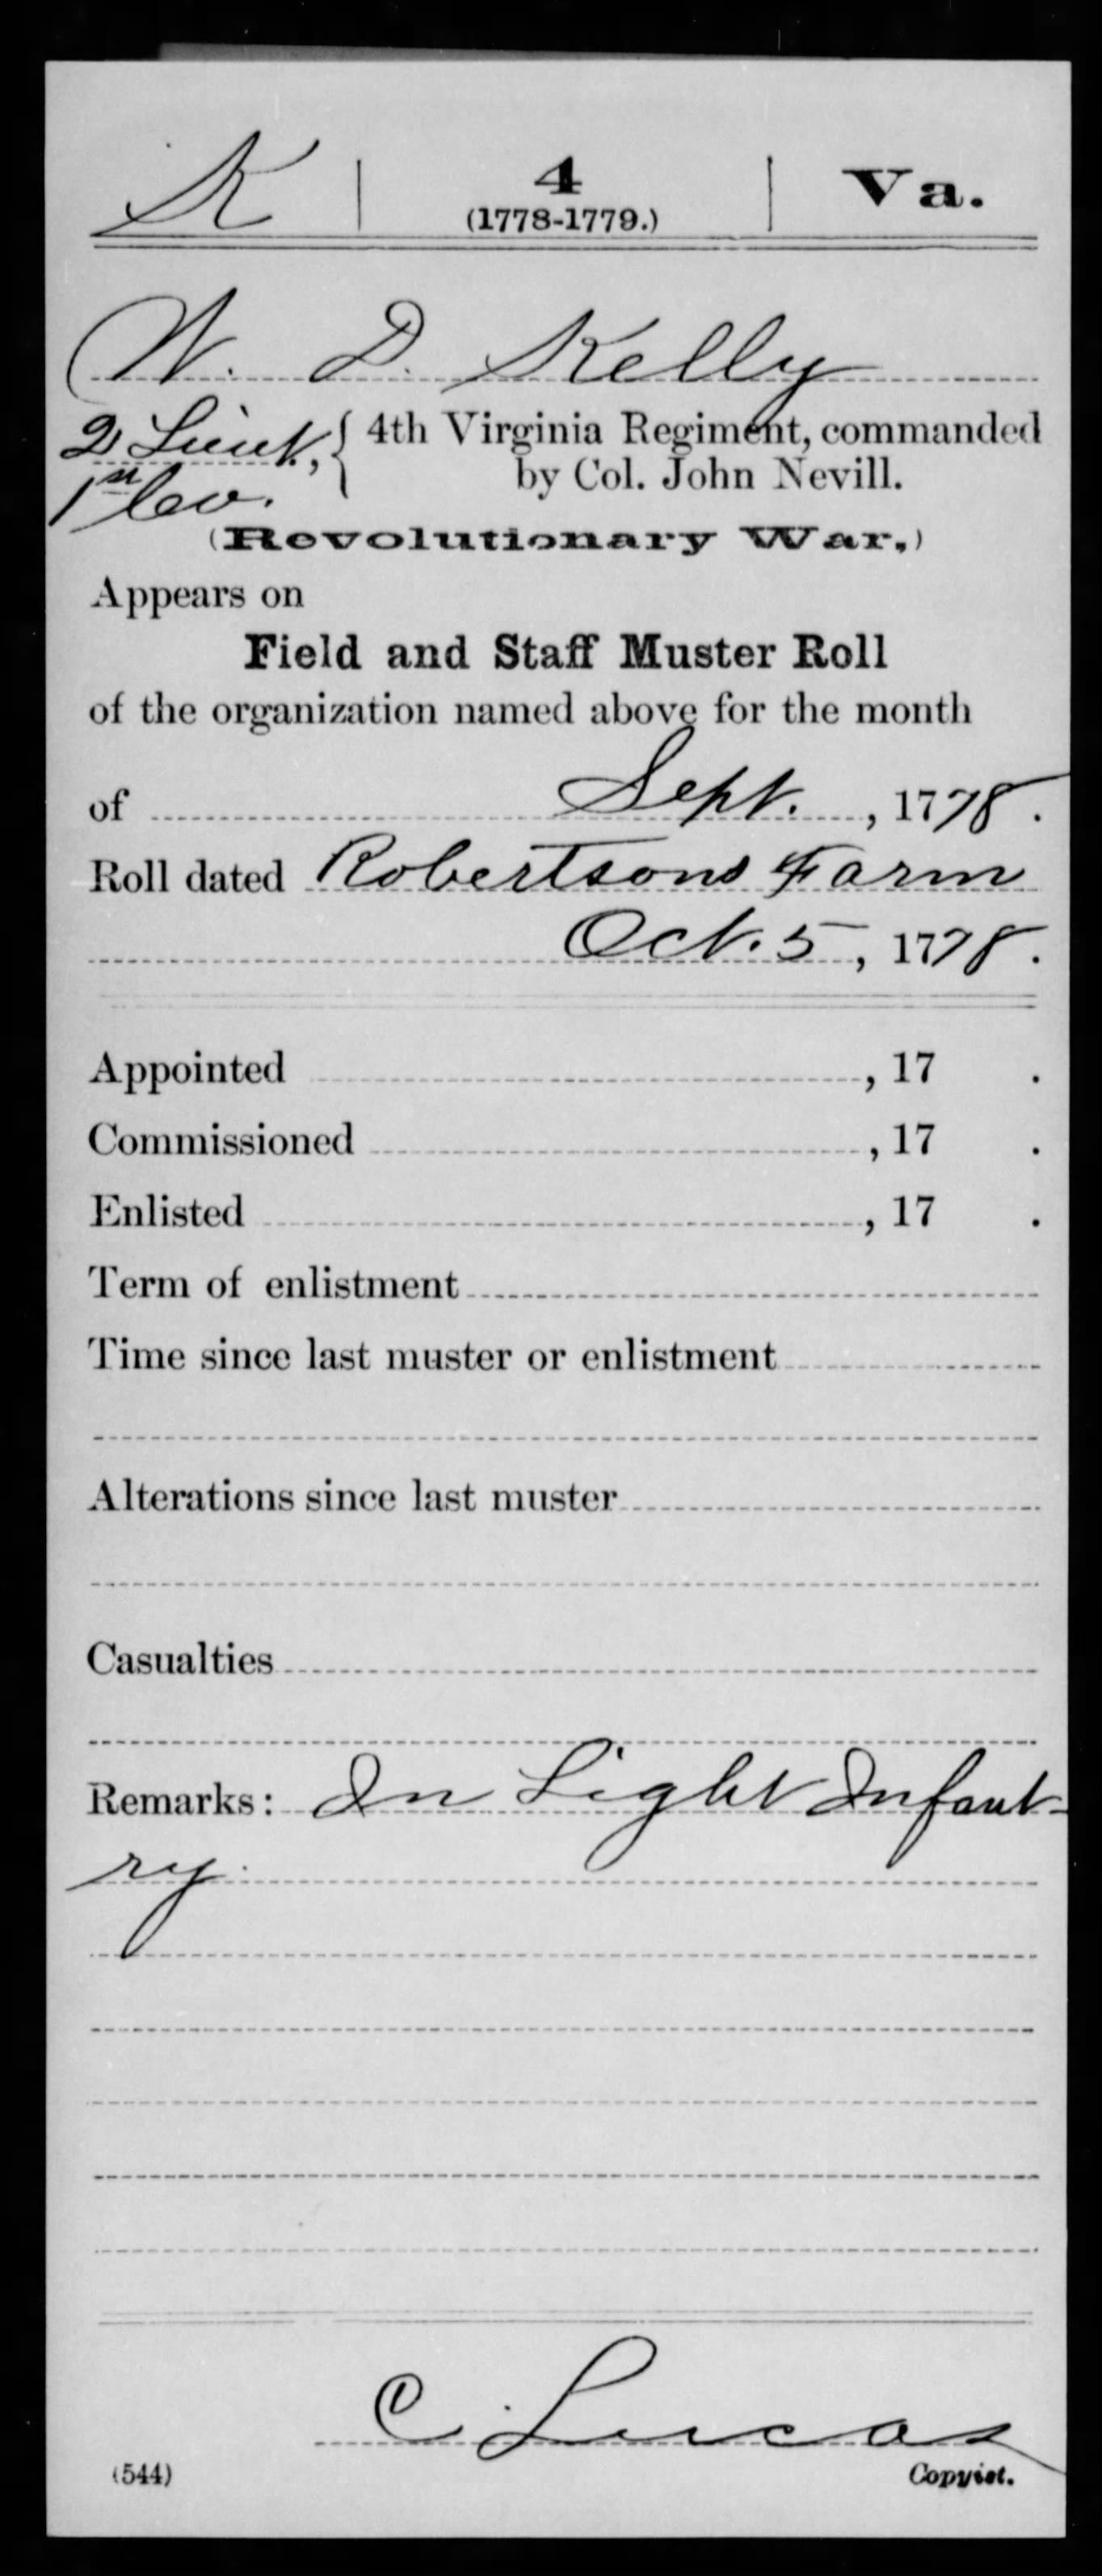 K | 4 | Va.
(1778-1779.)
W. D. Kelly
2 Lieut, { 4th Virginia Regiment, commanded
1st Co. by Col. John Nevill.
(Revolutionary War.)
Appears on
Field and Staff Muster Roll
of the organization named above for the month
of Sept., 1778.
Roll dated Robertsons Farm
Oct. 5, 1778.
Appointed , 17 .
Commissioned , 17 .
Enlisted , 17 .
Term of enlistment
Time since last muster or enlistment
Alterations since last muster
Casualties
Remarks: In Light Infant-
ry.
C. Lucas
(544) Copyist.